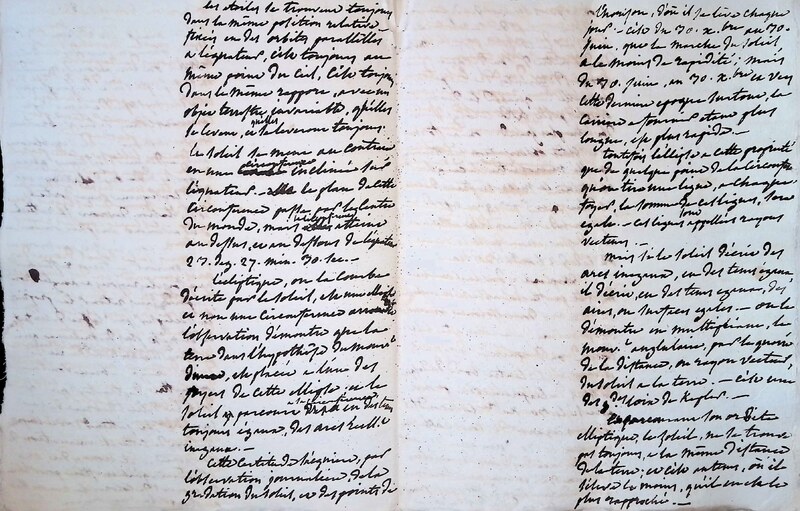 les étoiles se trouvent toujours
dans la même position relative
fixées en des orbites parallelles
a l'équateur, c'est toujours au
même point du Ciel, c'est toujours
dans le même rapport, avec un
objet terrestre, invariable, qu'elles
se levent, et se leveront toujours.
Le soleil se meut au Contraire
en une circonférence inclinée sur
l'équateur. - le plan de cette
Circonférence passe par le Centre
du monde, mais atteint
au dessus, et au dessous de l'équateur
23. deg. 27. min. 30. sec. -
l'écliptique, ou la Courbe
décrite par le soleil, est une
et non une Circonférence
l'observation démontre que la
terre dans l'hypothèse du mouv.t
est placée a l'un des
foyers de cette et le
soleil parcourt en des tems
toujours égaux, des arcs
inégaux. -
Cette Certitude s'acquiert, par
l'observation journaliere, de la
gradation du soleil, et des points de
l'horison, d'où il se leve chaque
jour - c'est du 30. x.bre au 30.
Juin, que la marche du soleil,
a le moins de rapidité; mais
du 30. Juin, au 30. x.bre et vers
cette derniere epoque surtout, la
Carriere a fournir étant plus
longue, est plus rapide. -
toutefois l'éllipse a cette propriété
que de quelque point de la Circonf.
qu'on tire une ligne, a chaque
foyer, la somme de ces lignes, sera
egale. - Ces lignes sont appellées rayons
vecteurs. -
mais si le soleil décrit des
arcs inegaux, en des tems egaux
il décrit, en des tems egaux, des
aires, ou surfaces egales. - on le
démontre en multipliant, le
mouv.t angulaire, par le quarré
de la distance, ou rayon vecteur,
du soleil a la terre. - c'est une
des loix de Kepler. -
En parcourant son orbite
elliptique, le soleil, ne se trouve
pas toujours, a la même distance
de la terre; et c'est au tems, où il
s'éleve le moins, qu'il en est le
plus rapproché. -